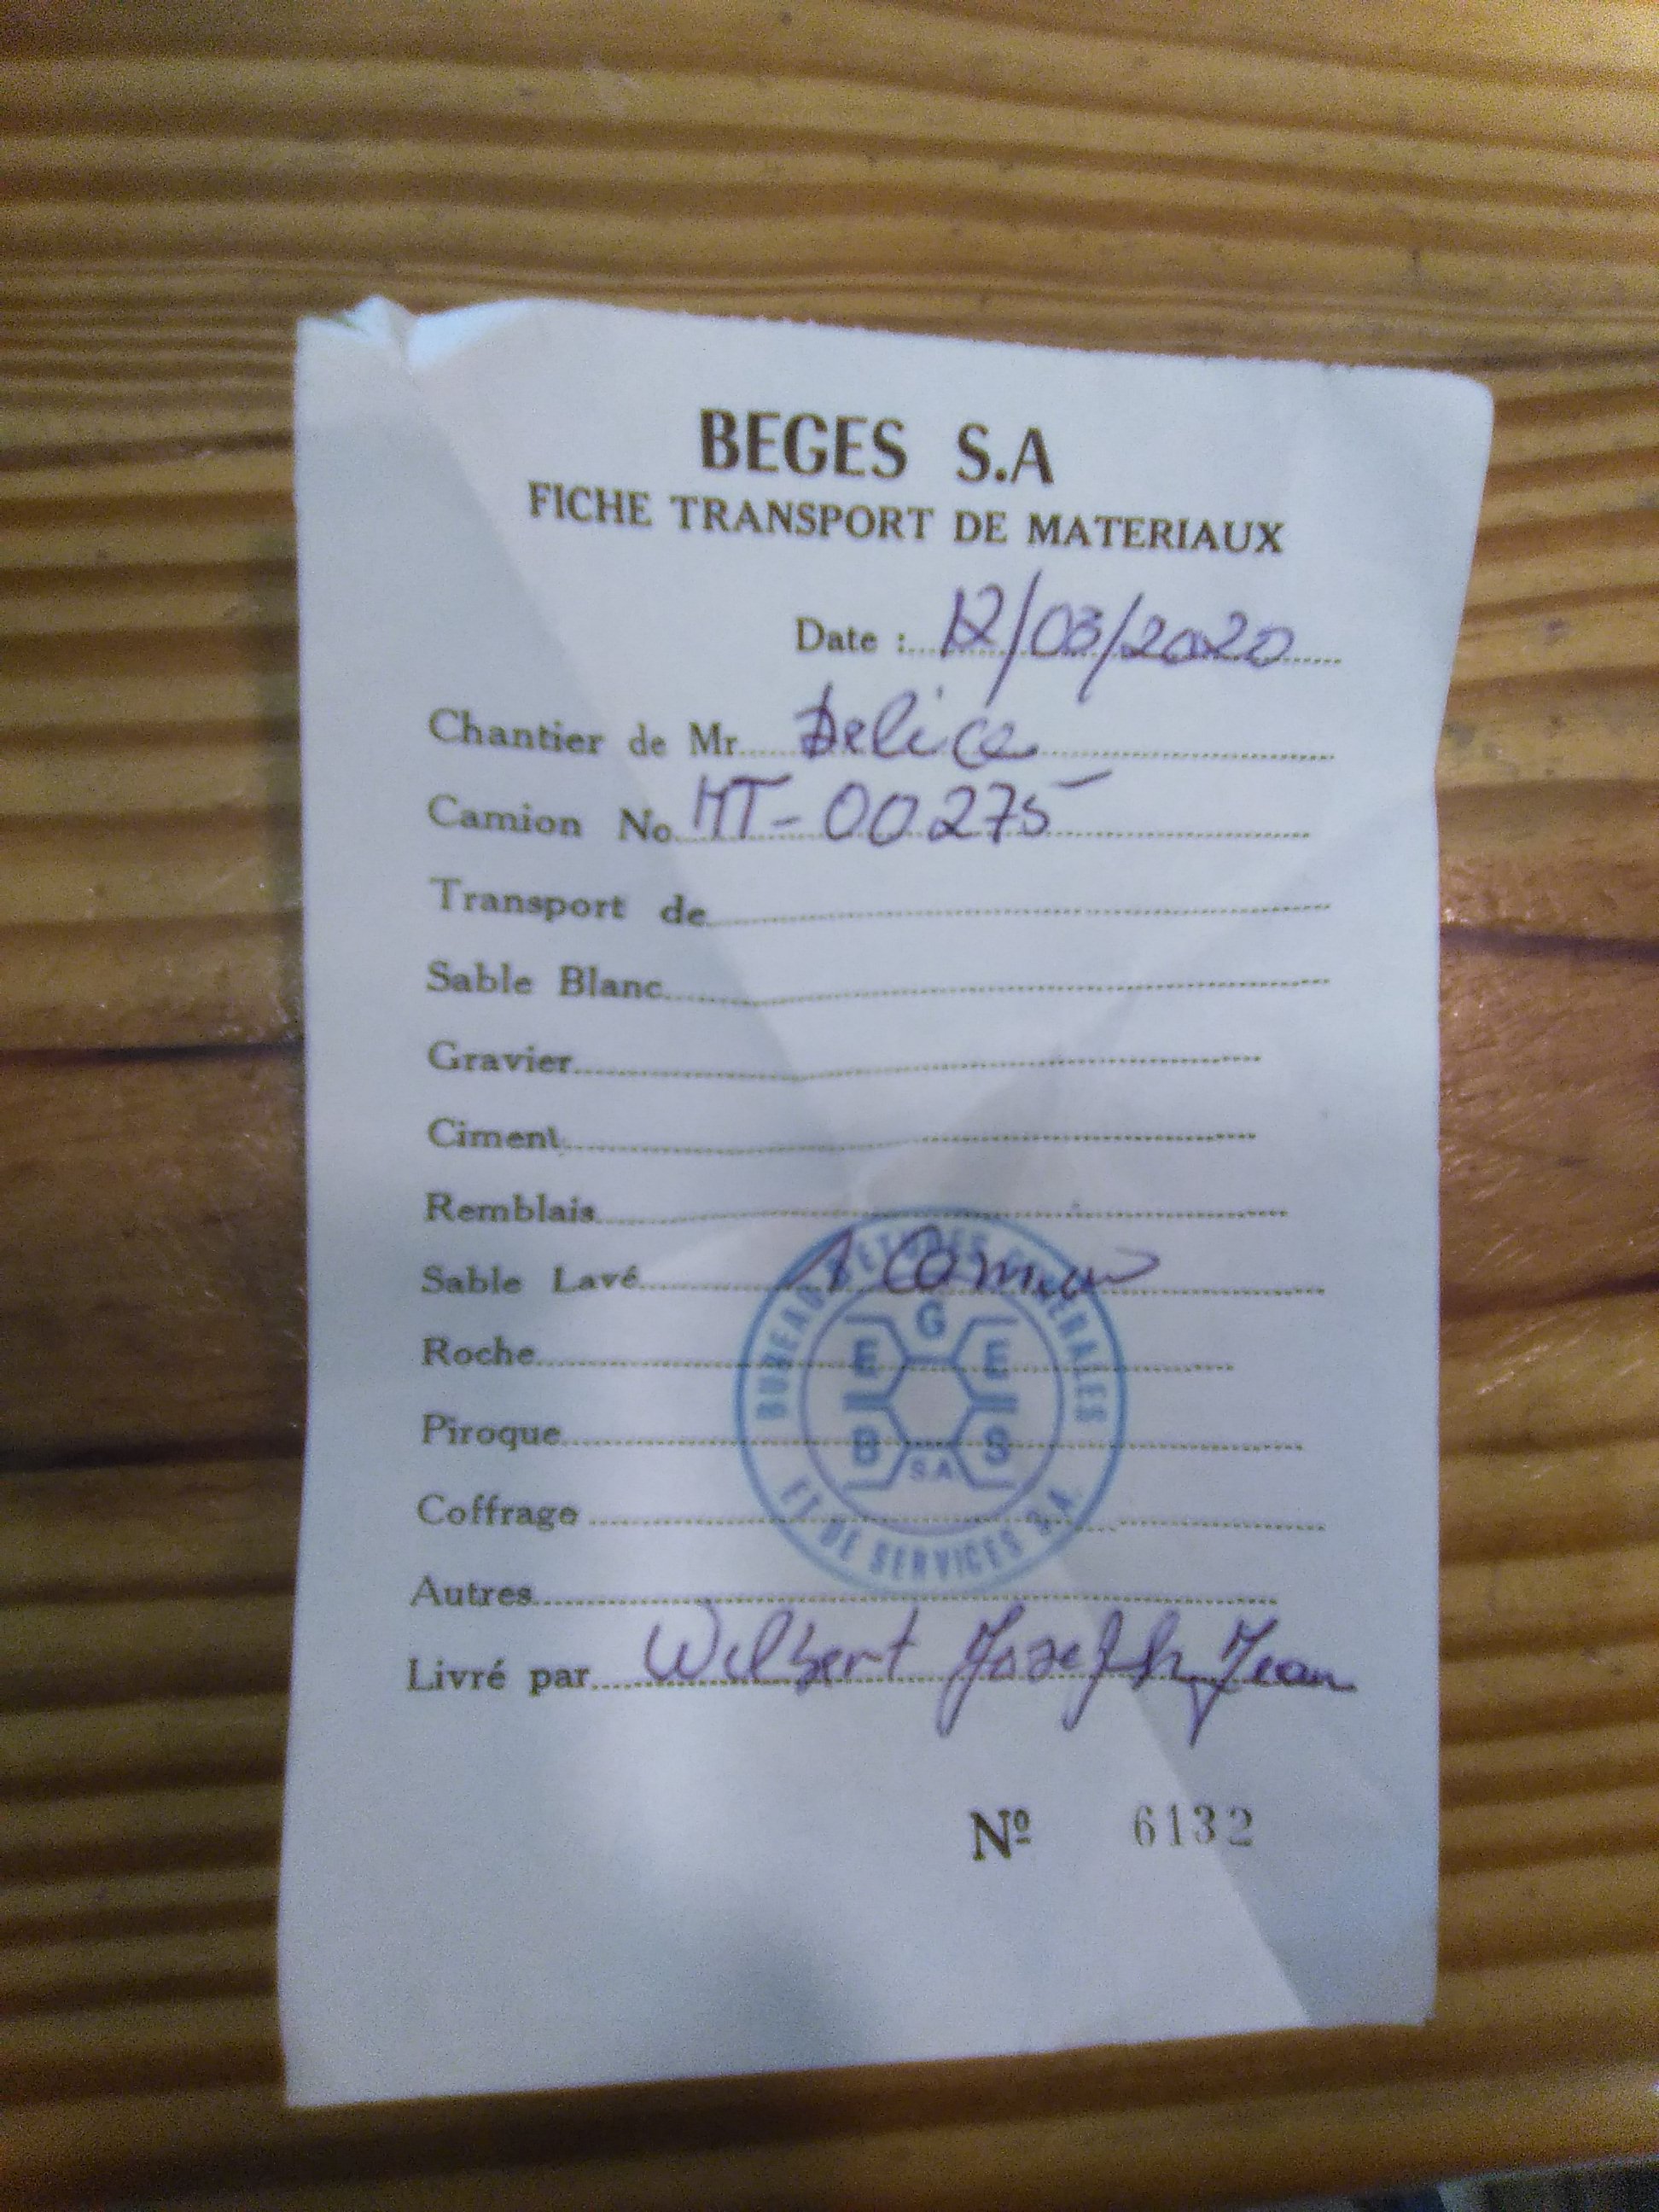 BEGES S.A
FICHE TRANSPORT DE MATERIAUX
Date : 12/03/2020
Chantier de Mr Delice
Camion No HT-00275
Transport de
Sable Blanc
Gravier
Ciment
Remblais
Sable Lavé 1 Camion
Roche
Piroque
Coffrage
Autres
Livré par Wilbert Joseph Jean
BUREAU D'ETUDES GENERALES
G
E E
B S
S.A
ET DE SERVICES S.A.
Nº 6132